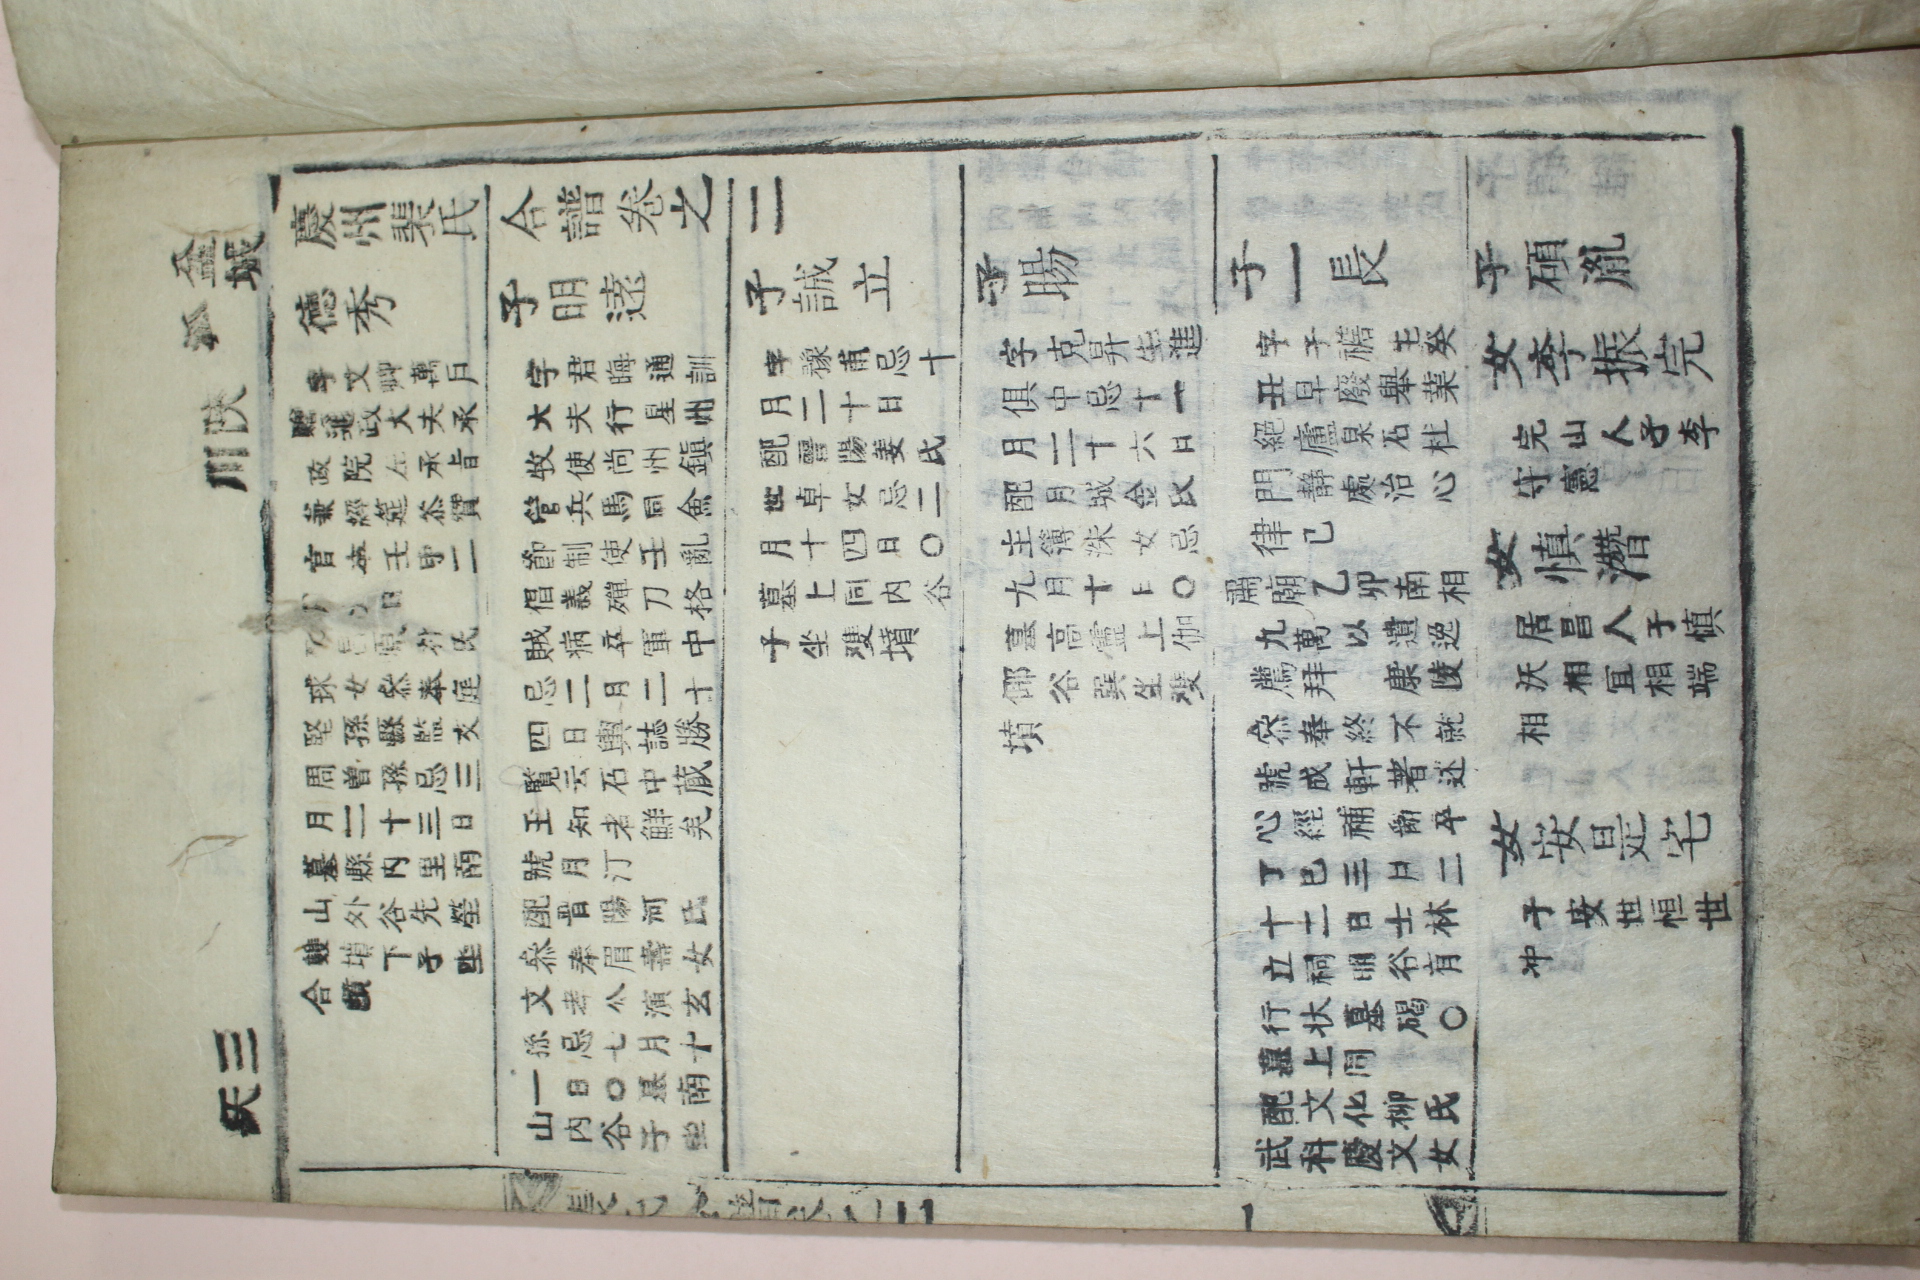 金城
陜川
三天
慶州裴氏合譜卷之二
德秀
字文卿萬戶
贈通政大夫承
政院左承旨
兼經筵叅贊
官本壬申二
原朴氏
球女叅奉庭
堅孫縣監友
周曾孫忌三
月二十三日
墓縣内里南
山外谷先塋
雙墳下子坐
合墳
子明遠
字君晦通訓
大夫行星州
牧使尚州鎮
管兵馬同僉
節制使壬亂
倡義殫刀格
賊病卒軍中
忌二月二十
四日輿誌勝
覧云石中蔵
玉知者鮮矣
號月汀
配晋陽河氏
叅奉眉壽女
文孝公演玄
孫忌七月十
一日〇墓南
山内谷子坐
子誠立
字豫甫忌十
月二十日
配晋陽姜氏
世卓女忌二
月十四日〇
墓上同内谷
子坐雙墳
子暘
字克昇生進
俱中忌十一
月二十六日
配月城金氏
主簿洙女忌
九月十日〇
墓高靈上伽
倻谷巽坐雙
墳
子一長
字子襜生癸
丑早廢舉業
絕廬泉石杜
門靜處治心
律己
肅廟乙卯南相
九萬以遺逸
薦拜 康陵
叅奉終不就
號成軒著述
心經補翻卒
丁巳三月二
十二日士林
立祠明谷有
行状墓碣〇
墓上同
配文化柳氏
武科慶文女
子碩胤
女李振完
完山人子李
守憲
女慎潛
居昌人子慎
沃相宜相端
相
女安是宅
子安世恒世
冲
裴氏合譜卷之二
一